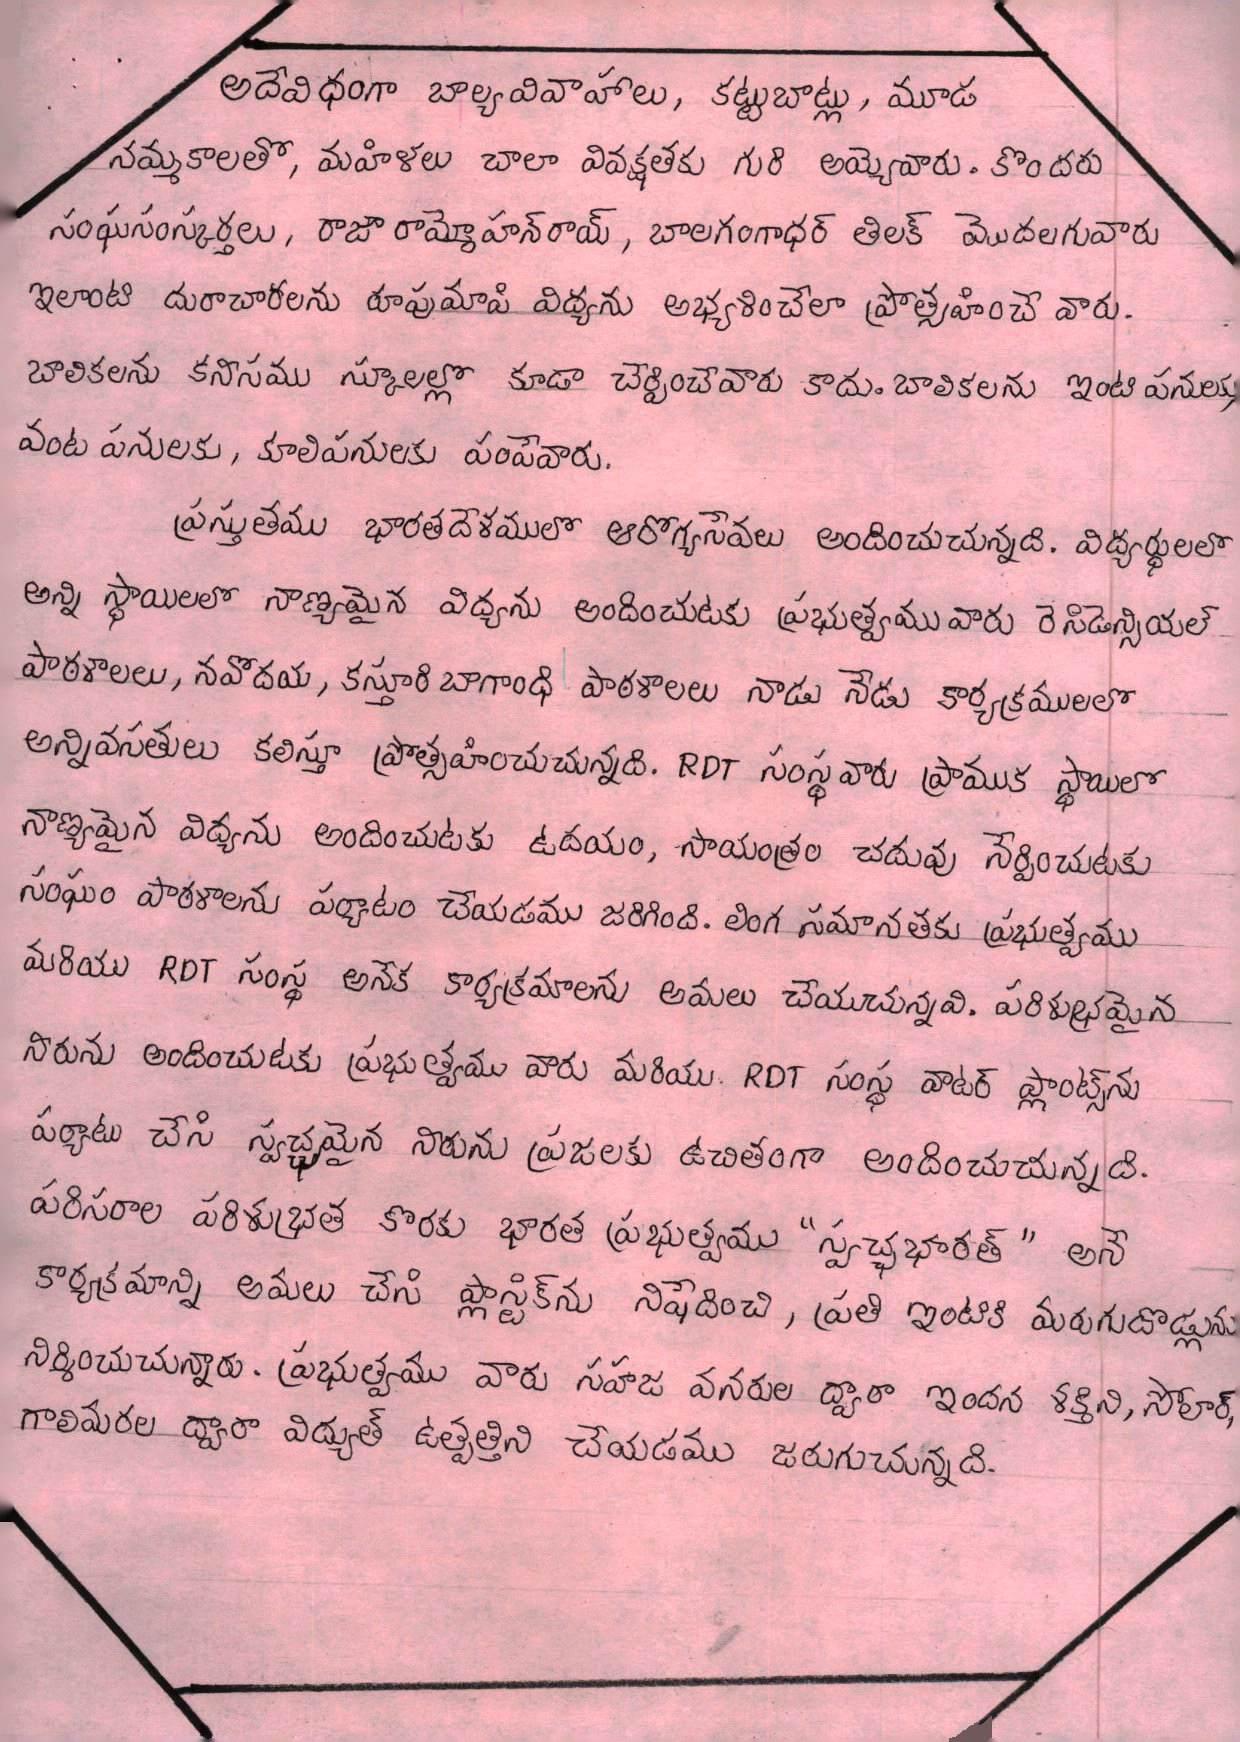 అదేవిధంగా బాల్యవివాహాలు, కట్టుబాట్లు, మూడ
నమ్మకాలతో, మహిళలు చాలా వివక్షతకు గురి అయ్యెవారు. కొందరు
సంఘసంస్కర్తలు, రాజా రామ్మోహన్‌రాయ్, బాలగంగాధర్ తిలక్ మొదలగువారు
ఇలాంటి దురాచారాలను రూపుమాపి విద్యను అభ్యశించేలా ప్రోత్సహించే వారు.
బాలికలను కనీసము స్కూలల్లో కూడా చేర్పించేవారు కాదు. బాలికలను ఇంటి పనులకు,
వంట పనులకు, కూలిపనులకు పంపేవారు.
ప్రస్తుతము భారతదేశములో ఆరోగ్యసేవలు అందించుచున్నది. విద్యర్థులలో
అన్ని స్థాయిలలో నాణ్యమైన విద్యను అందించుటకు ప్రభుత్వము వారు రెసిడెన్సియల్
పాఠశాలలు, నవోదయ, కస్తూరి బాగాంధి పాఠశాలలు నాడు నేడు కార్యక్రములలో
అన్నివసతులు కలిస్తూ ప్రోత్సహించుచున్నది. RDT సంస్థవారు ప్రాముక స్థాయిలో
నాణ్యమైన విద్యను అందించుటకు ఉదయం, సాయంత్రం చదువు నేర్పించుటకు
సంఘం పాఠశాలను పర్యాటం చేయడము జరిగింది. లింగ సమానతకు ప్రభుత్వము
మరియు RDT సంస్థ అనేక కార్యక్రమాలను అమలు చేయుచున్నవి. పరిశుభ్రమైన
నీరును అందించుటకు ప్రభుత్వము వారు మరియు. RDT సంస్థ వాటర్ ప్లాంట్స్‌ను
పర్యాటు చేసి స్వచ్ఛమైన నీరును ప్రజలకు ఉచితంగా అందించుచున్నది.
పరిసరాల పరిశుభ్రత కొరకు భారత ప్రభుత్వము "స్వచ్ఛభారత్" అనే
కార్యక్రమాన్ని అమలు చేసి ప్లాస్టిక్‌ను నిషేదించి, ప్రతి ఇంటికి మరుగుదొడ్లును
నిర్మించుచున్నారు. ప్రభుత్వము వారు సహజ వనరుల ద్వారా ఇందన శక్తిని, సోలార్,
గాలిమరల ద్వారా విద్యుత్ ఉత్పత్తిని చేయడము జరుగుచున్నది.